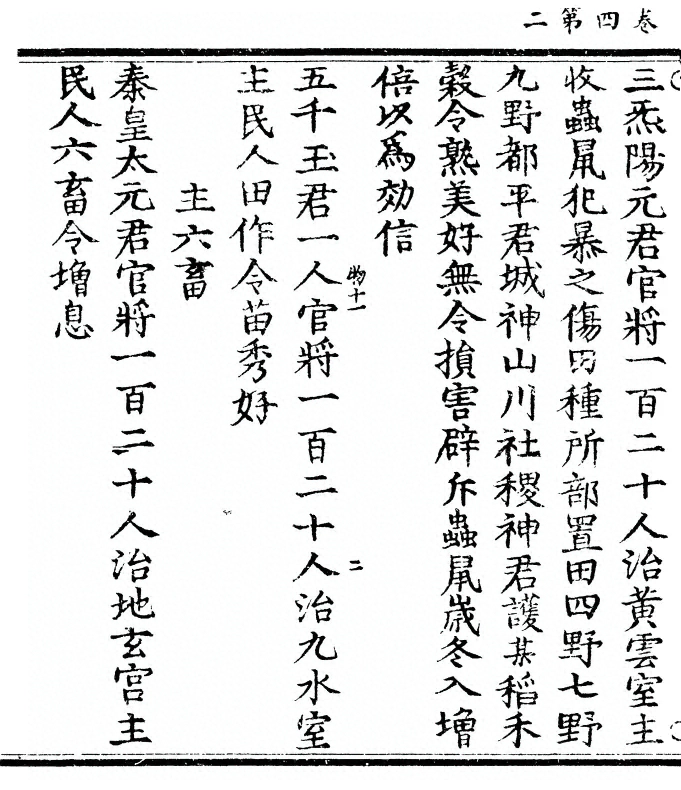 卷四第二
三炁陽元君官將一百二十人治黃雲室主
收蟲鼠犯暴之傷田種所部置田四野七野
九野都平君城神山川社稷神君護某稻禾
穀令熟美好無令損害辟斥蟲鼠歲冬入增
倍以爲効信
五千玉君一人官將一百二十人治九水室
物十一
二
主民人田作令苗秀好
主六畜
泰皇太元君官將一百二十人治地玄宮主
民人六畜令增息